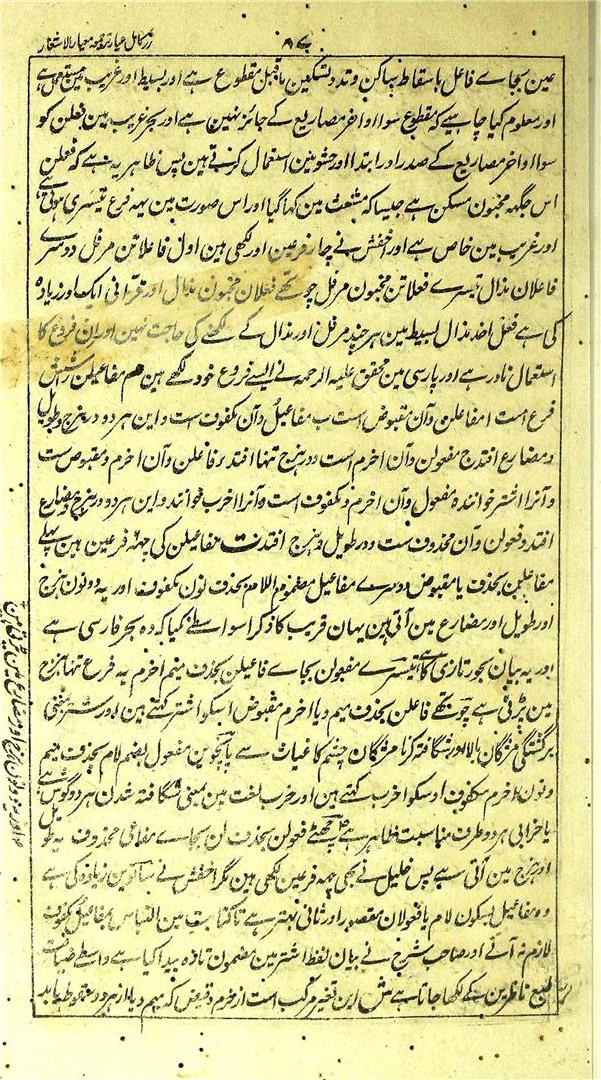 زر کامل عیار ترجمہ معیار الاشعار
۸۷
عین بجاے فاعل باسقاط ساکن وتد و تسکین ماقبل مقطوع ہے اور بسیط اور غریب مین مستعمل ہے
اور معلوم کیا چاہیے کہ مقطوع سوا اواخر مصاریع کے جائز نہین ہے اور بحر غریب مین فعلن کو
سوا اواخر مصاریع کے صدر اور ابتدا اور حشو مین استعمال کرتے ہین پس ظاہر یہ ہے کہ فعلن
اس جگہہ مخبون مسکن ہے جیسا کہ مشعث مین کہا گیا اور اس صورت مین یہہ فرع تیسری ہوئی ہے
اور غریب مین خاص ہے اور اخفش نے چار فرعین اور لکھی ہین اول فاعلاتن مرفل دوسرے
فاعلان مذال تیسرے فعلاتن مخبون مرفل چوتھے فعلان مخبون مذال اور فرّانی ایک اور زیادہ
کی ہے فعل اخذ مذال بسیط مین ہر چند مرفل اور مذال کے لکھنے کی حاجت نہین اور ان فروع کا
استعمال نادر ہے اور پارسی مین محقق علیہ الرحمہ نے ایسے فروع خود لکھے ہین هم مفاعیلن را شش
فرع است ا مفاعلن وآن مقبوض است ب مفاعیلُ وآن مکفوف ست و این ہر دو در ہزج و طویل
و مضارع افتد ج مفعولن وآن اخرم است و در ہزج تنہا افتد د فاعلن وآن اخرم و مقبوض ست
و آنرا اشتر خوانند ہ مفعول وآن اخرم و مکفوف است و آنرا اخرب خوانند و این ہر دو در ہزج و مضارع
افتد و فعولن وآن محذوف ست و در طویل و ہزج افتد ت مفاعیلن کی چہہ فرعین ہین پہلے
مفاعلن بحذف یا مقبوض دوسرے مفاعیل مضموم اللام بحذف نون مکفوف اور یہ دونون ہزج
اور طویل اور مضارع مین آتی ہین یہان قریب کا ذکر اسواسطے نکیا کہ وہ بحر فارسی ہے
اور یہ بیان بحور تازی کا ہے تیسرے مفعولن بجاے فاعیلن بحذف میم اخرم یہ فرع تنہا ہزج
مین پڑتی ہے چوتھے فاعلن بحذف میم و یا اخرم مقبوض اسکو اشتر کہتے ہین اور شتر بمعنی
برگشتگی مژگان بالا اور شگافتہ کرنا مژگان چشم کا غیاث سے پانچوین مفعول بضم لام بحذف میم
و نون اخرم مکفوف اوسکو اخرب کہتے ہین اور خرب لغت مین بمعنی شگافتہ شدن ہر دو گوش ہے
یا خرابی ہر دو طرف مناسبت ظاہر ہے چھٹے فعولن بحذف لن بجاے مفاعی محذوف یہ طویل
اور ہزج مین آتی ہے پس خلیل نے بھی چہہ فرعین لکھی ہین مگر اخفش نے ساتوین زیادہ کی ہے
وہ مفاعیل بسکون لام یا فعولان مقصور اور ثانی بہتر ہے تا کتابت مین التباس بمفاعیل مکفوف
لازم نہ آئے اور صاحب شرح نے بیان لفظ اشتر مین مضمون تازہ پیدا کیا ہے واسطے ضیافت
طبع ناظرین کے لکھا جاتا ہے ش این تغییر مرکب است از خرم و قبض کہ میم و یا از ہر دو سقوط یابد